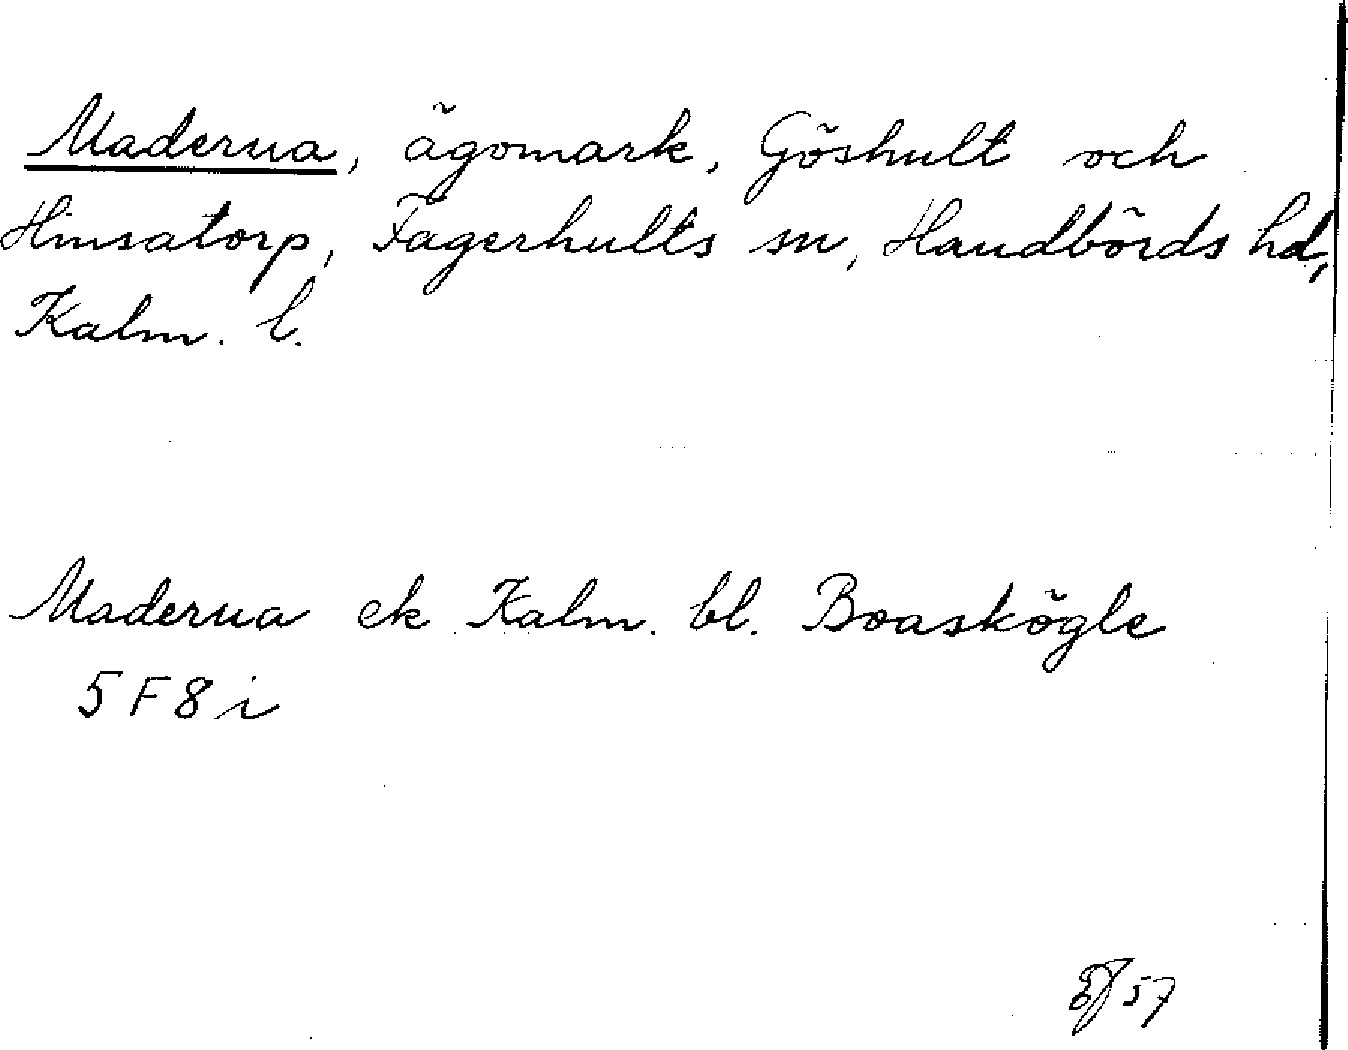 Maderna, ägomark, Göshult och
Hinsatorp, Fagerhults sn, Handbörds hd,
Kalm. l.
Maderna ek Kalm. bl. Boaskögle
5F8i
57